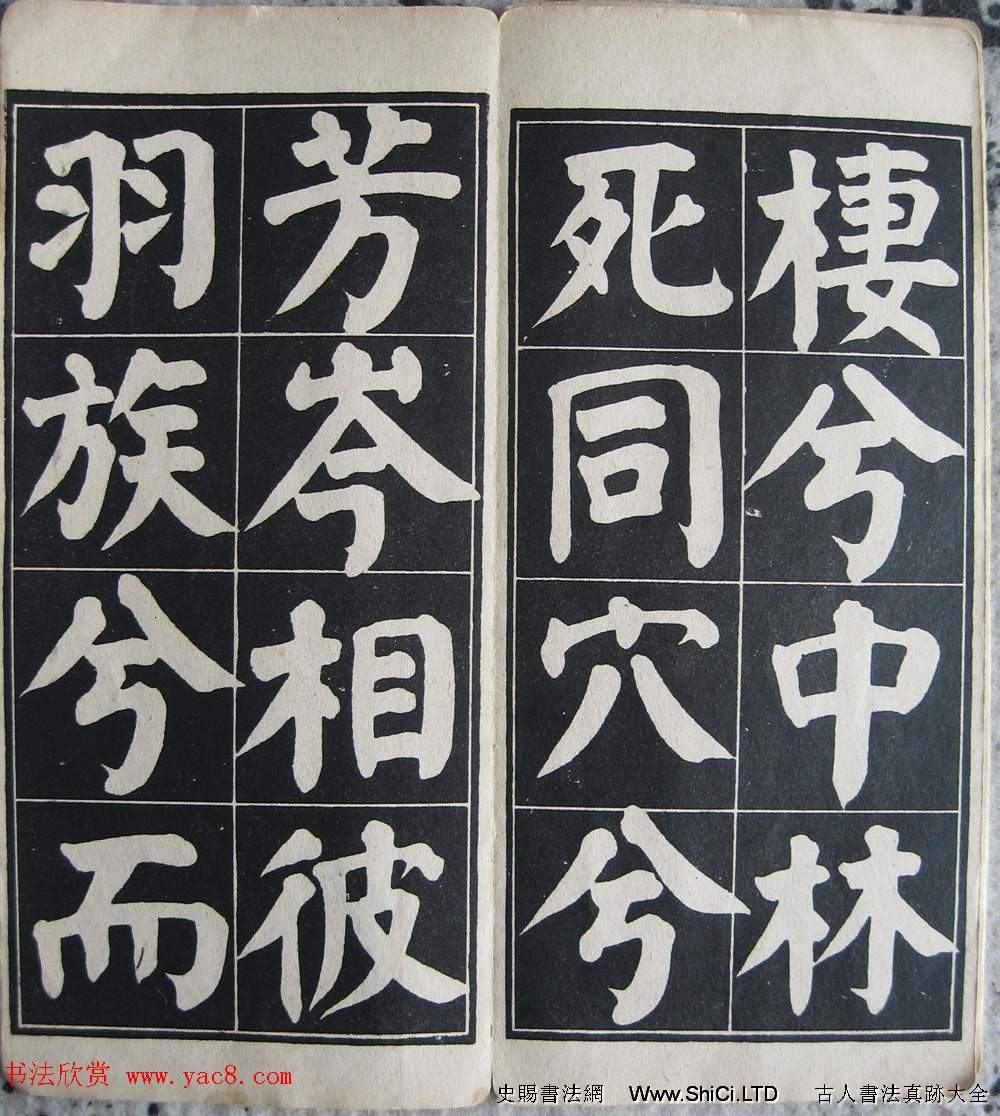 棲兮中林
死同穴兮
芳岑相彼
羽族兮而
书法欣赏 www.yac8.com
史賜書法網 Www.ShiCi.LTD 古人書法真跡大全